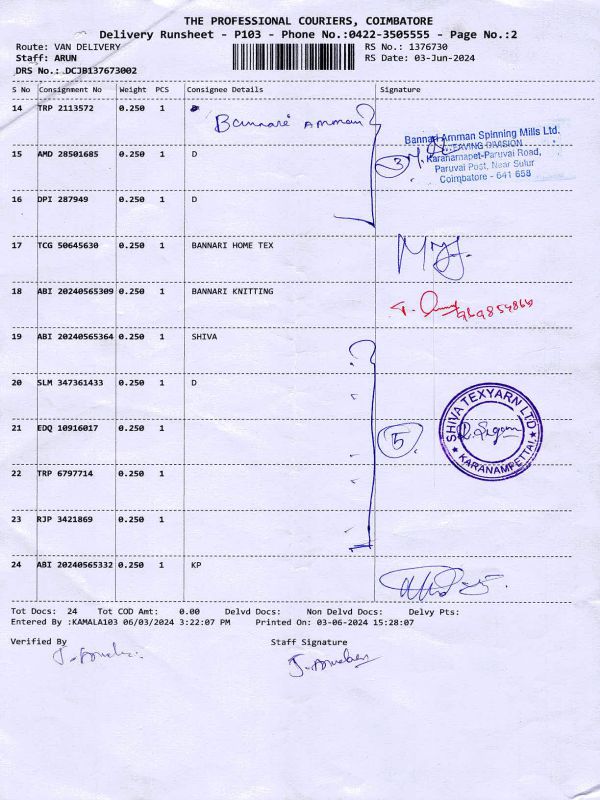 THE PROFESSIONAL COURIERS, COIMBATORE
Delivery Runsheet - P103 - Phone No.:0422-3505555 - Page No.:2
Route: VAN DELIVERY RS No.: 1376730
Staff: ARUN RS Date: 03-Jun-2024
DRS No.: DCJB137673002
S No Consignment No Weight PCS Consignee Details Signature
14 TRP 2113572 0.250 1
Bannari Amman
Bannari Amman Spinning Mills Ltd.
WEAVING DIVISION
15 AMD 28501685 0.250 1 D 3 Karanampet-Paruvai Road,
Paruvai Post, Near Sulur
Coimbatore - 641 658
16 DPI 287949 0.250 1 D
17 TCG 50645630 0.250 1 BANNARI HOME TEX
18 ABI 20240565309 0.250 1 BANNARI KNITTING
19 ABI 20240565364 0.250 1 SHIVA
20 SLM 347361433 0.250 1 D
21 EDQ 10916017 0.250 1 5
SHIVA TEXYARN LTD
KARANAMPETTAI
22 TRP 6797714 0.250 1
23 RJP 3421869 0.250 1
24 ABI 20240565332 0.250 1 KP
Tot Docs: 24 Tot COD Amt: 0.00 Delvd Docs: Non Delvd Docs: Delvy Pts:
Entered By :KAMALA103 06/03/2024 3:22:07 PM Printed On: 03-06-2024 15:28:07
Verified By Staff Signature